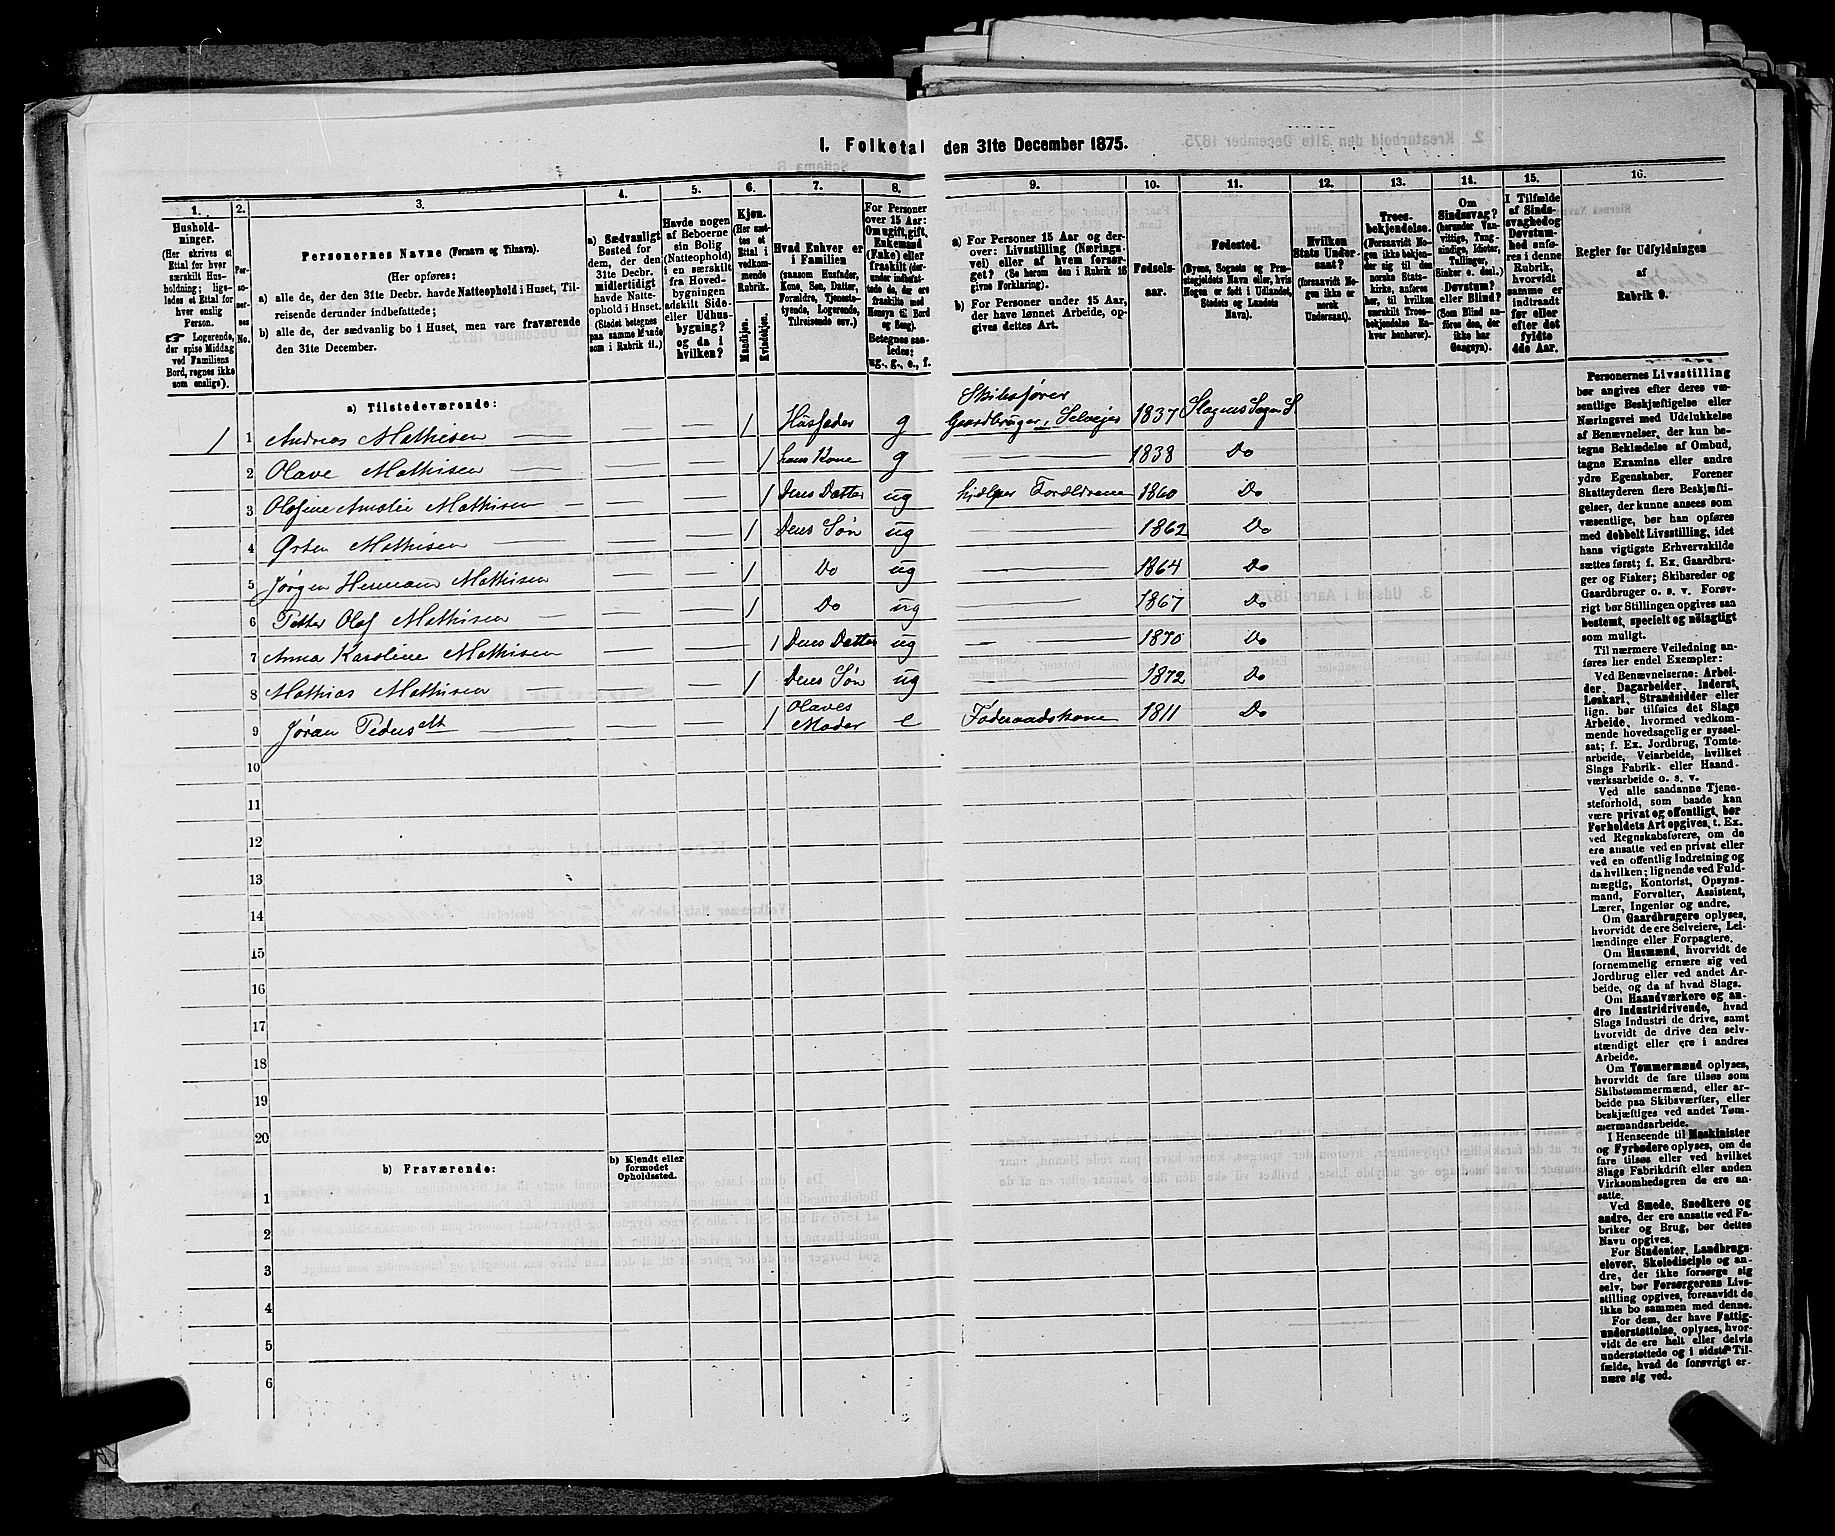 I. Folketal den 31te December 1875.
1. 2. 3. 4. 5. 6. 7. 8. 9. 10. 11. 12. 13. 14. 15. 16.
Husholdninger.
(Her skrives et
Ettal for hver
særskilt Husholdning;
ligeledes et Ettal for
hver enslig
Person.
☛ Logerende,
der spise Middag
ved Familiens
Bord, regnes ikke
som enslige).
Personernes No.
Personernes Navne (Fornavn og Tilnavn).
(Her opføres:
a) alle de, der den 31te Decbr. havde Natteophold i Huset, Tilreisende derunder indbefattede;
b) alle de, der sædvanlig bo i Huset, men vare fraværende
den 31te December.
a) Sædvanligt
Bosted for
dem, der den
31te Decbr.
midlertidigt
havde Natteophold i Huset.
(Stedet betegnes
paa samme Maade
som i Rubrik 11.)
Havde nogen
af Beboerne
sin Bolig
(Natteophold)
i en særskilt
fra Hovedbygningen
adskilt Side-
eller Udhusbygning?
og da i
hvilken?
Kjøn.
(Her sættes et
Ettal i
vedkommende
Rubrik.)
Mandkjøn.
Kvindekjøn.
Hvad Enhver er
i Familien
(saasom Husfader,
Kone, Søn, Datter,
Forældre, Tjenestetyende, Logerende,
Tilreisende osv.)
For Personer
over 15 Aar:
Om ugift, gift,
Enkemand
(Enke) eller
fraskilt (derunder indbefattede de, der ere
fraskilte med
Hensyn til Bord
og Seng).
Betegnes saaledes:
ug., g., e., f.
a) For Personer 15 Aar og derover: Livsstilling (Næringsvei) eller af hvem forsørget? (Se herom den i Rubrik 16
givne Forklaring).
b) For Personer under 15 Aar,
der have lønnet Arbeide, opgives dettes Art.
Fødselsaar.
Fødested.
(Byens, Sognets og Præstegjeldets Navn eller, hvis
Nogen er født i Udlandet,
Stedets og Landets
Navn).
Hvilken
Stats Undersaat?
(forsaavidt Nogen ikke er
norsk
Undersaat).
Troesbekjendelse.
(Forsaavidt Nogen ikke bekjender sig til den
norske Statskirke, anføres
her, til hvilken
særskilt Troesbekjendelse Enhver henhører).
Om
Sindssvag?
(herunder Vanvittige, Tungsindige, Idioter,
Tullinger,
Sinker o. desl.)
Døvstum?
eller Blind?
(Som Blind anføres den, der
ikke har
Gangsyn).
I Tilfælde
af Sindssvaghed og
Døvstumhed anføres i denne
Rubrik,
hvorvidt
samme er
indtraadt
før eller
efter det
fyldte
4de Aar.
Regler for Udfyldningen
af
Rubrik 9.
a) Tilstedeværende:
1 1 Andreas Mathisen — — — 1 Husfader g Skibsfører Gaardbruger, Selveier 1837 Slagens Sogn S.
2 Olave Mathisen — — — 1 hans Kone g — — 1838 Do
3 Olafine Amalie Mathisen — — — 1 Deres Datter ug hjælper Forældrene 1860 Do
4 Ørten Mathisen — — — 1 Deres Søn ug — 1862 Do
5 Jørgen Herman Mathisen — — 1 Do ug — 1864 Do
6 Petter Olaf Mathisen — — — 1 Do ug — 1867 Do
7 Anna Karoline Mathisen — — 1 Deres Datter ug — — 1870 Do
8 Mathias Mathisen — — — 1 Deres Søn ug — 1872 Do
9 Jøran Pedersdt — — — 1 Olaves Moder e Føderaadskone 1811 Do
10
11
12
13
14
15
16
17
18
19
20
b) Fraværende:
b) Kjendt eller
formodet
Opholdssted.
1
2
3
4
5
6
Personernes Livsstilling
bør angives efter deres væsentlige Beskjæftigelse eller
Næringsvei med Udelukkelse
af Benævnelser, der kun betegne Beklædelse af Ombud,
tagne Examina eller andre
ydre Egenskaber. Forener
Skatteyderen flere Beskjæftigelser, der kunne ansees som
væsentlige, bør han opføres
med dobbelt Livsstilling, idet
hans vigtigste Erhvervskilde
sættes først; f. Ex. Gaardbruger og Fisker; Skibsreder og
Gaardbruger o. s. v. Forøvrigt bør Stillingen opgives saa
bestemt, specielt og nøiagtigt
som muligt.
Til nærmere Veiledning anføres her endel Exempler:
Ved Benævnelserne: Arbeider, Dagarbeider, Inderst,
Løskarl, Strandsidder eller
lign. bør tilføies det Slags
Arbeide, hvormed vedkommende hovedsagelig er sysselsat; f. Ex. Jordbrug, Tomtearbeide, Veiarbeide, hvilket
Slags Fabrik- eller Haandværksarbeide o. s. v.
Ved alle saadanne Tjenesteforhold, som baade kan
være privat og offentligt, bør
Forholdets Art opgives, t. Ex.
ved Regnskabsførere, om de
ere ansatte ved en privat eller
ved en offentlig Indretning og
da hvilken; lignende ved Fuldmægtig, Kontorist, Opsynsmand, Forvalter, Assistent,
Lærer, Ingeniør og andre.
Om Gaardbrugere oplyses,
hvorvidt de ere Selveiere, Leilændinge eller Forpagtere.
Om Husmænd, hvorvidt de
fornemmelig ernære sig ved
Jordbrug eller ved andet Arbeide, og da af hvad Slags.
Om Haandværkere og andre Industridrivende, hvad
Slags Industri de drive, samt
hvorvidt de drive den selvstændigt eller ere i andres
Arbeide.
Om Tømmermænd oplyses,
hvorvidt de fare tilsøs som
Skibstømmermænd, eller arbeide paa Skibsværfter, eller
beskjæftiges ved andet Tømmermandsarbeide.
I Henseende til Maskinister
og Fyrbødere oplyses, om de
fare tilsøs eller ved hvilket
Slags Fabrikdrift eller anden
Virksomhedsgren de ere ansatte.
Ved Smede, Snedkere og
andre, der ere ansatte ved Fabriker og Brug, bør dettes
Navn opgives.
For Studenter, Landbrugselever, Skoledisciple og andre, der ikke forsørge sig
selv, bør Forsørgerens Livsstilling opgives, forsaavidt de
ikke bo sammen med denne.
For dem, der have Fattigunderstøttelse, oplyses, hvorvidt de ere helt eller delvis
understøttede og i sidste Tilfælde, hvad de forøvrigt ernære sig ved.